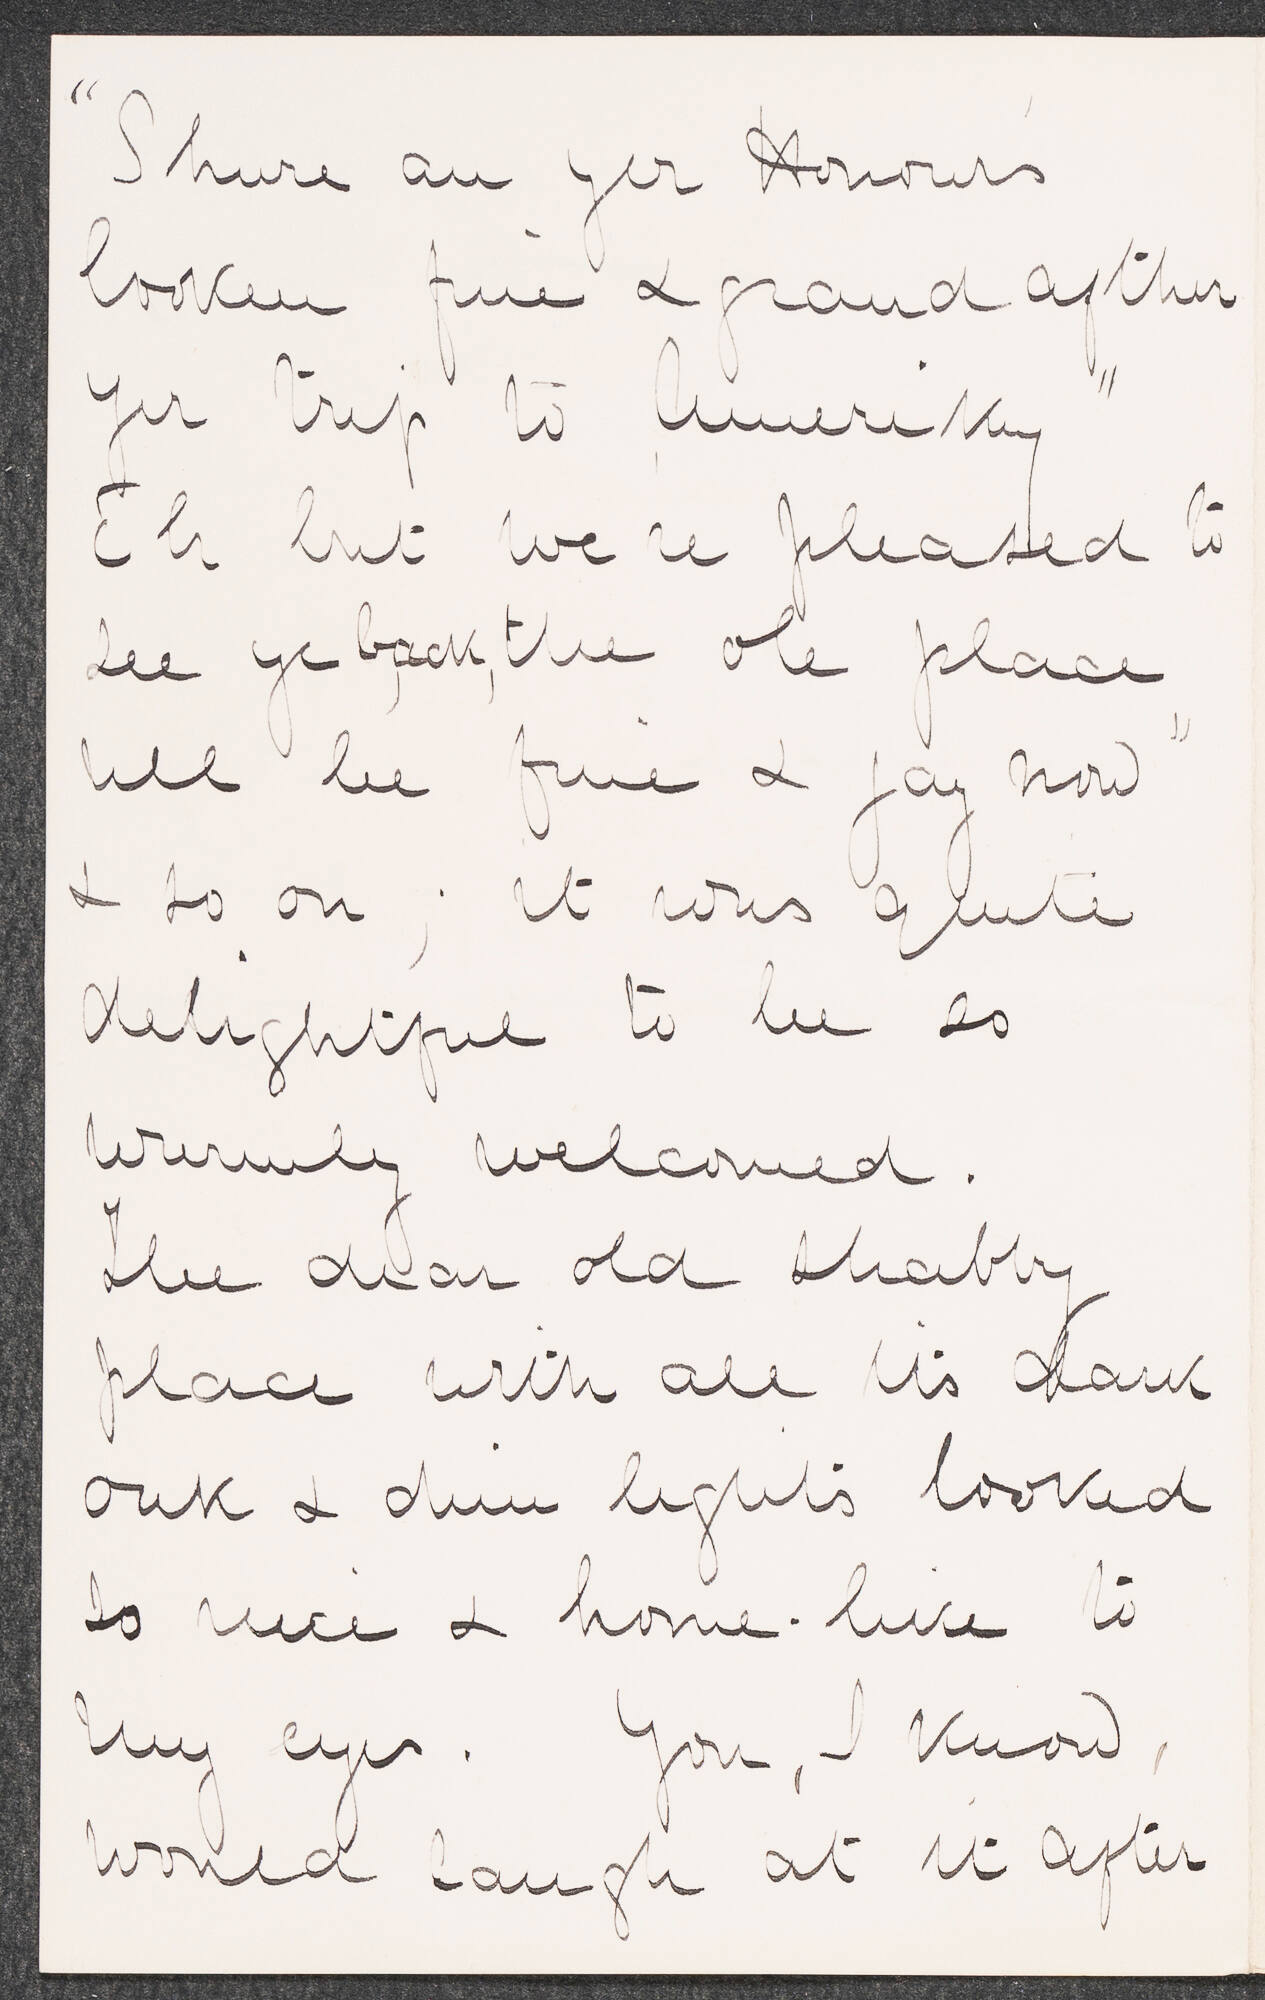 "Shure an yer Honour's
looken fine & grand afther
yer trip to Ameriky"
Eh but we're pleased to
see ye back, the ole place
ull be fine & gay now"
& so on; it was quite
delightful to be so
warmly welcomed.
The dear old shabby
place with all its dark
oak & dim lights looked
so nice & home-like to
my eyes. You, I know,
would laugh at it after